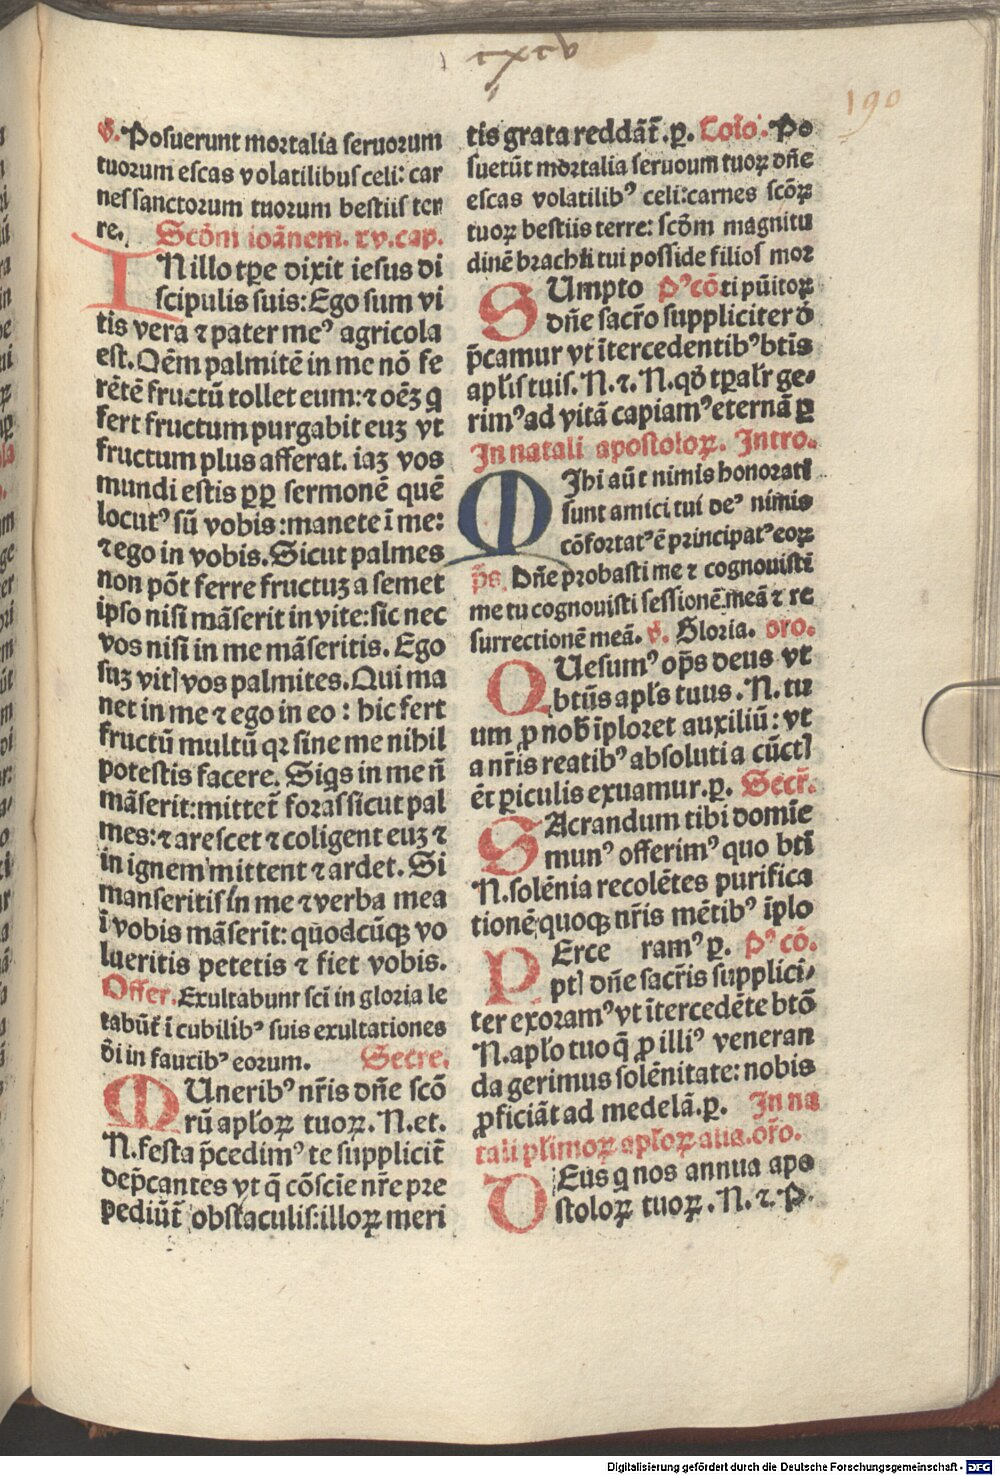 cxcv
190
℣. Posuerunt mortalia seruorum
tuorum escas volatilibus celi: car
nes sanctorum tuorum bestiis ter
re. Scd̄m ioānem. xv. cap.
IN illo tꝑe dixit iesus di
scipulis suis: Ego sum vi
tis vera ⁊ pater meꝰ agricola
est. Oēm palmitē in me nō fe
rētē fructū tollet eum: ⁊ oēꝫ q
fert fructum purgabit euꝫ vt
fructum plus afferat. iaꝫ vos
mundi estis ꝓp̄ sermonē quē
locutꝰ sū vobis: manete ī me:
⁊ ego in vobis. Sicut palmes
non pōt ferre fructuꝫ a semet
ipso nisi māserit in vite: sic nec
vos nisi in me māseritis. Ego
suꝫ vitꝭ vos palmites. Qui ma
net in me ⁊ ego in eo: hic fert
fructū multū qꝛ sine me nihil
potestis facere. Siqs in me n̄
māserit: mittet̄ foras sicut pal
mes: ⁊ arescet ⁊ coligent euꝫ ⁊
in ignem mittent ⁊ ardet. Si
manseritis in me ⁊ verba mea
ī vobis māserit: quodcūqꝫ vo
lueritis petetis ⁊ fiet vobis.
Offer. Exultabunt sci in gloria le
tabūt̄ ī cubilibꝰ suis exultationes
d̄i in faucibꝰ eorum. Secre.
MUneribꝰ nr̄is dn̄e scō
rū apl'oꝝ tuoꝝ. N. et.
N. festa p̄cedimꝰ te supplicit̄
dep̄cantes vt q̄ cōscie nr̄e pre
pediūt̄ obstaculis: illoꝝ meri
tis grata reddāt̄. ꝑ. Cōio. Po
suetūt mortalia seruoum tuoꝝ dn̄e
escas volatilibꝰ celi: carnes scōꝝ
tuoꝝ bestiis terre: scd̄m magnitu
dinē brachii tui posside filios mor
SUmpto Pꝰcō ti pūitoꝝ
dn̄e sacr̄o suppliciter d̄
p̄camur vt ītercedentibꝰ bt̄is
apl'is tuis. N. ⁊. N. qd̄ tꝑal'r ge-
rimꝰ ad vitā capiamꝰ eternā ꝑ
In natali apostoloꝝ. Intro.
MIhi aūt nimis honorati
sunt amici tui deꝰ nimis
cōfortatꝰ ē principatꝰ eoꝝ
p̄s. Dn̄e probasti me ⁊ cognouisti
me tu cognouisti sessionē meā ⁊ re
surrectionē meā. ℣. Gloria. oro.
QUesumꝰ op̄s deus vt
bt̄us apl's tuus. N. tu
um ꝓ nob̄ īploret auxiliū: vt
a nr̄is reatibꝰ absoluti a cūctꝭ
ēt ꝑiculis exuamur. ꝑ. Secr̄.
SAcrandum tibi domīe
munꝰ offerimꝰ quo bti
N. solēnia recolētes purifica
tionē quoqꝫ nr̄is mētibꝰ īplo
PErce ramꝰ ꝑ. Pꝰ cō.
ptꝭ dn̄e sacr̄is supplici-
ter exoramꝰ vt ītercedēte btō
N. apl'o tuo q̄ ꝓ illiꝰ veneran
da gerimus solēnitate: nobis
ꝓficiāt ad medelā. ꝑ. In na
tali pl'imoꝝ apl'oꝝ alia. or̄o.
DEus q nos annua apo
stoloꝝ tuoꝝ. N. ⁊. P.
Digitalisierung gefördert durch die Deutsche Forschungsgemeinschaft - DFG